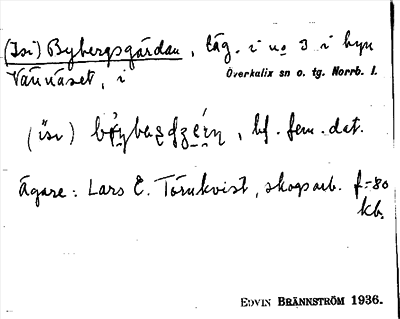 (Isi) Bybergsgårdan, läg. i no 3 i byn
Vännäset, i Överkalix sn o. tg. Norrb. l.
(isi) , bf. fem. dat.
Ägare: Lars E. Törnkvist, skogsarb. f-80
kb.
EDVIN BRÄNNSTRÖM 1936.